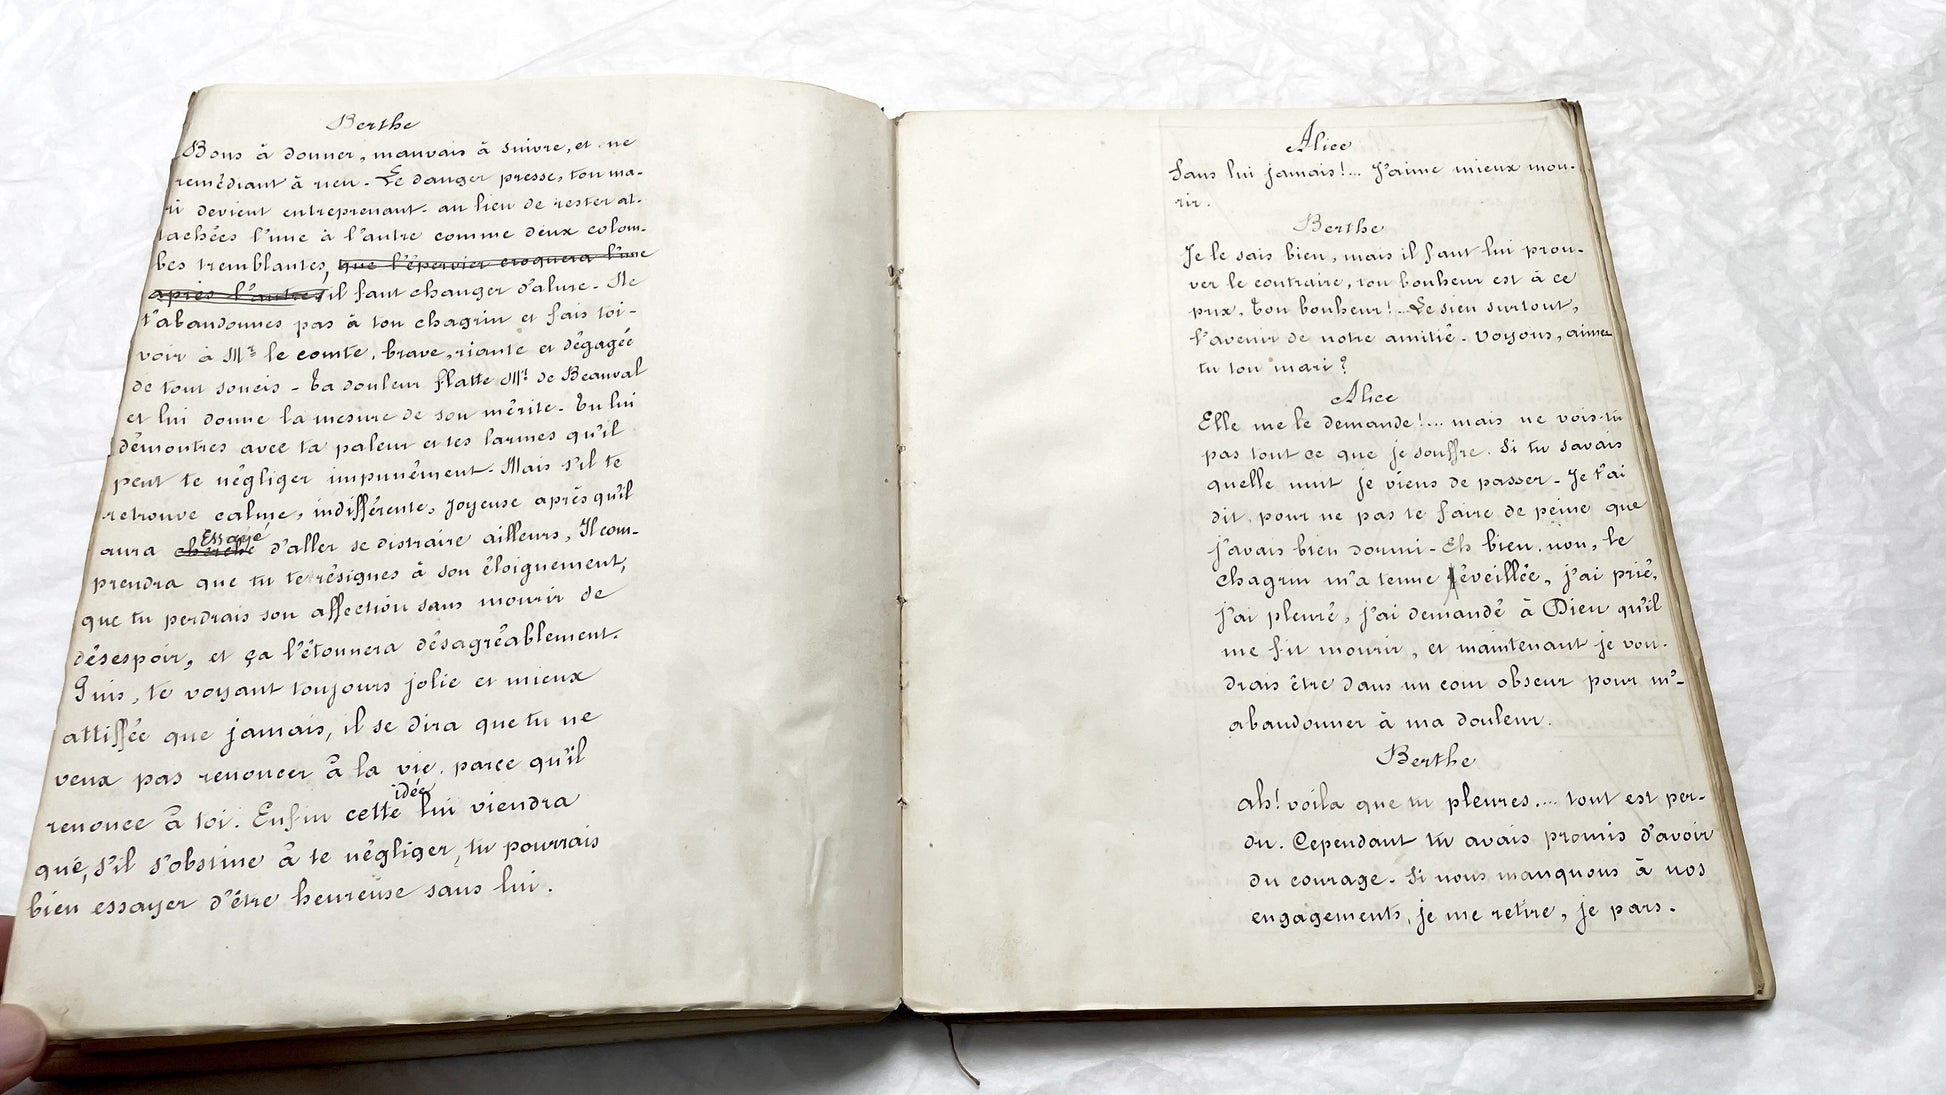 Berthe
Bons à donner, mauvais à suivre, et ne
remédiant à rien - Le danger presse, ton ma-
ri devient entreprenant - au lieu de rester at-
tachées l'une à l'autre comme deux colom-
bes tremblantes, que l'épervier croquera l'une
après l'autre, il faut changer d'alure - Ne
t'abandonnes pas à ton chagrin et fais toi-
voir à Mr le comte, brave, riante et dégagée
de tout soucis - Ta douleur flatte Mr de Beauval
et lui donne la mesure de son mérite - Tu lui
démontres avec ta paleur et tes larmes qu'il
peut te négliger impunément - Mais s'il te
retrouve calme, indifférente, joyeuse après qu'il
Essayé
aura cherché d'aller se distraire ailleurs, Il com-
prendra que tu te résignes à son éloignement,
que tu perdrais son affection sans mourir de
désespoir, et ça l'étonnera désagréablement.
Puis, te voyant toujours jolie et mieux
attiffée que jamais, il se dira que tu ne
veux pas renoncer à la vie, parce qu'il
idée
renonce à toi. Enfin cette lui viendra
que, s'il s'obstine à te négliger, tu pourrais
bien essayer d'être heureuse sans lui.
Alice
Sans lui jamais!... J'aime mieux mou-
rir.
Berthe
Je le sais bien, mais il faut lui prou-
ver le contraire, ton bonheur est à ce
prix, ton bonheur!... Le sien surtout,
l'avenir de notre amitié - Voyons, aimes
tu ton mari?
Alice
Elle me le demande!... mais ne vois-tu
pas tout ce que je souffre. Si tu savais
quelle nuit je viens de passer - Je t'ai
dit, pour ne pas te faire de peine que
j'avais bien dormi - Eh bien, non, le
chagrin m'a tenue éveillée, j'ai prié,
j'ai pleuré, j'ai demandé à Dieu qu'il
me fit mourir, et maintenant je vou-
drais être dans un coin obscur pour m'-
abandonner à ma douleur.
Berthe
ah! voila que tu pleures.... tout est per-
du. Cependant tu avais promis d'avoir
du courage - Si nous manquons à nos
engagements, je me retire, je pars.